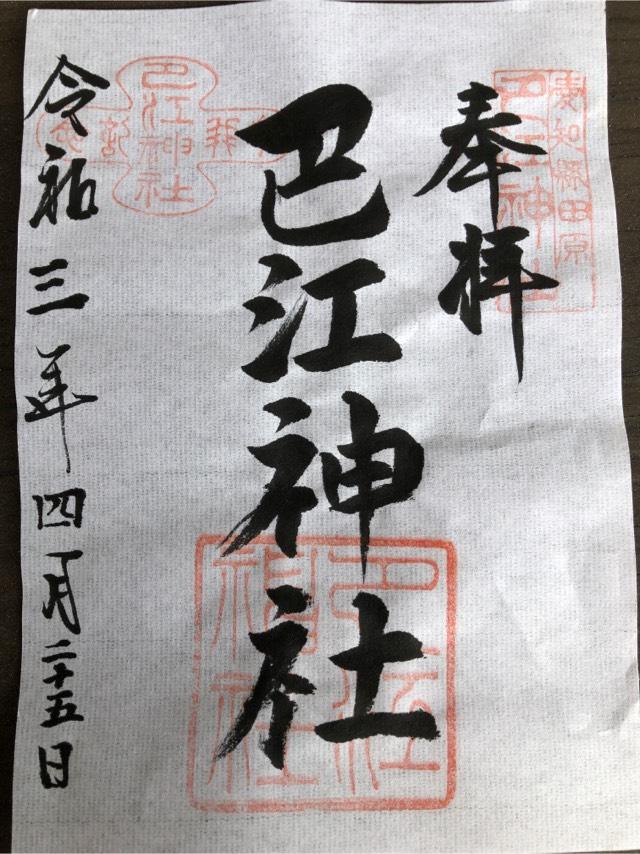 愛知県田原
巴江神社
奉拝
巴江神社
巴江神社
巴江神社
令和三年四月二十五日